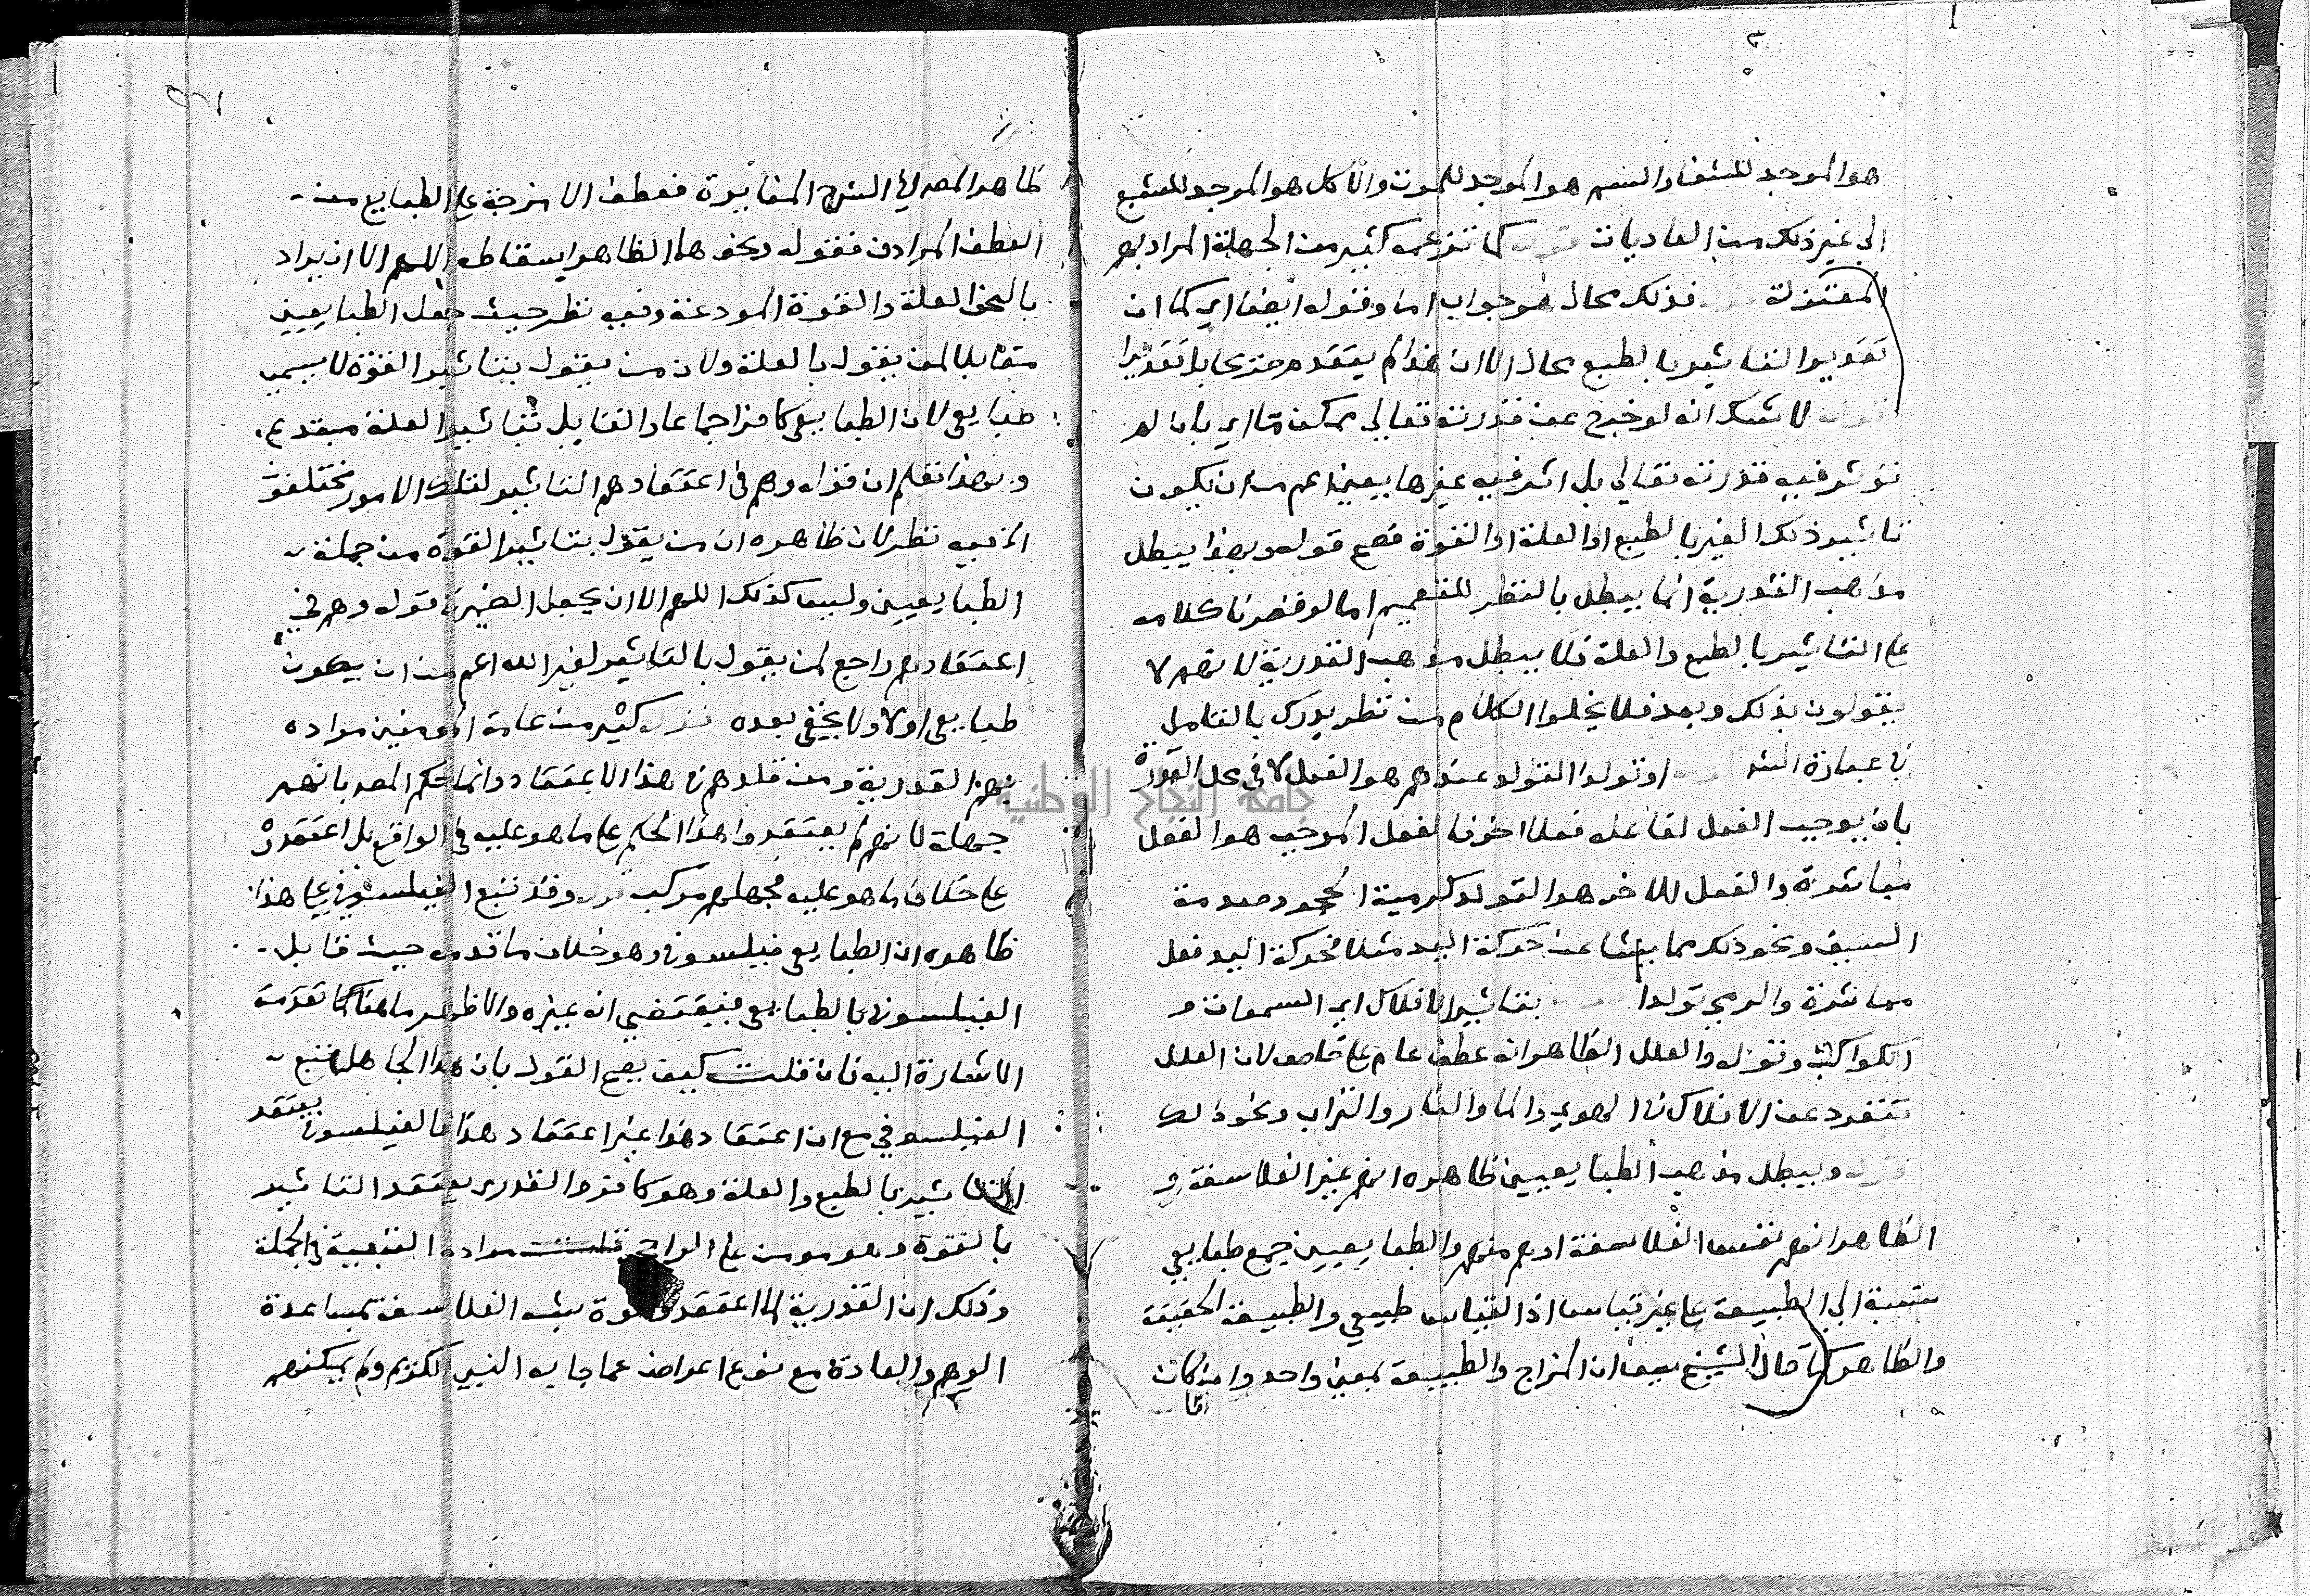 هو الموجد للشفا والسم هو الموجد للموت والاكل هو الموجد للشبع
الي غير ذلك من العاديات قوله كما تزعمه كثير من الجهلة المراد بهم
المعتزلة فذلك محال هو جواب اما وقوله ايضا اي كما ان
تقدير التاثير بالطبع محال الا ان هذا لم يتقدم حتى بل تقديرا
قوله لا شك انه لو خرج عن قدرته تعالي ممكن ما اي بان لم
تؤثر فيه قدرته تعالي بل اثر فيه غيرها يعني اعم من ان يكون
تاثير ذلك الغير بالطبع او العلة او القوة فصح قوله وبهذا يبطل
مذهب القدرية انما يبطل بالنظر للتعميم اما لو قصرنا كلامه
على التاثير بالطبع والعلة فلا يبطل مذهب القدرية لانهم لا
يقولون بذلك وبعد فلا يخلوا الكلام من نظر يدرك بالتامل
في عبارة الشـ او تولدا التولد عندهم هو الفعل لا في محل القدرة
بان يوجب الفعل لفاعله فعلا اخر فالفعل الموجب هو الفعل
مباشرة والفعل الاخر هو التولد كرمية الحجر وصدمة
السيف ونحو ذلك مما ينشا عن حركة اليد مثلا فحركة اليد فعل
مباشرة والرمي تولدا بتاثير الافلاك اي السموات و
الكواكب وقوله والعلل الظاهر انه عطف عام على خاص لان العلل
تنفرد عن الافلاك في الهوي والما والنار والتراب ونحو ذلك
قوله ويبطل مذهب الطبايعيين ظاهره انهم غير الفلاسفة و
الظاهر انهم نفس الفلاسفة او هم منهم والطبايعيين جمع طبايعي
نسبة الي الطبيعة على غير قياس اذ القياس طبيعي والطبيعة الحقيقة
والظاهر كما قال الشيخ يس ان المزاج والطبيعة بمعنى واحد وان كان
ظاهر المص في الشرح المغايرة فعطف الامزجة على الطبايع من
العطف المرادف فقوله ونحوها الظاهر اسقاطه اللهم الا ان يراد
بالنحو العلة والقوة المودعة وفيه نظر حيث جعل الطبايعيين
مقابلا لمن يقول بالعلة ولان من يقول بتاثير القوة لا يسمى
طبايعي لان الطبايعي كافر اجماعا والقايل بتاثير العلة مبتدع
وبهذا تعلم ان قوله وهم في اعتقادهم التاثير لتلك الامور مختلفون
الخ فيه نظر لان ظاهره ان من يقول بتاثير القوة من جملة
الطبايعيين وليس كذلك اللهم الا ان يجعل الضمير في قوله وهم في
اعتقادهم راجع لمن يقول بالتاثير لغير الله اعم من ان يكون
طبايعي او لا ولا يخفى بعده قوله كثير من عامة المومنين مراده
بهم القدرية ومن قلدهم في هذا الاعتقاد وانما حكم المص بانهم
جهلة لانهم لم يعتقدوا هذا الحكم على ما هو عليه في الواقع بل اعتقدوه
على خلاف ما هو عليه فجهلهم مركب قوله وقد تبع الفيلسوفي على هذا
ظاهره ان الطبايعي فيلسوف وهو خلاف ما قدمه حيث قابل
الفيلسوف بالطبايعي فيقتضي انه غيره والاظهر ما هنا كما تقدمت
الاشارة اليه فان قلت كيف يصح القول بان هذا الجاهل تبع
الفيلسوفي مع ان اعتقاد هذا غير اعتقاد هذا فالفيلسوف يعتقد
التاثير بالطبع والعلة وهو كافر والقدري يعتقد التاثير
بالقوة وهو مومن على الراجح قلت مراده التبعية في الجملة
وذلك ان القدرية لما اعتقدوا قوة بث الفلاسفة بمساعدة
الوهم والعادة مع نوع اعراض عما جا به النبي الكريم ولم يمكنهم
جامعة النجاح الوطنية